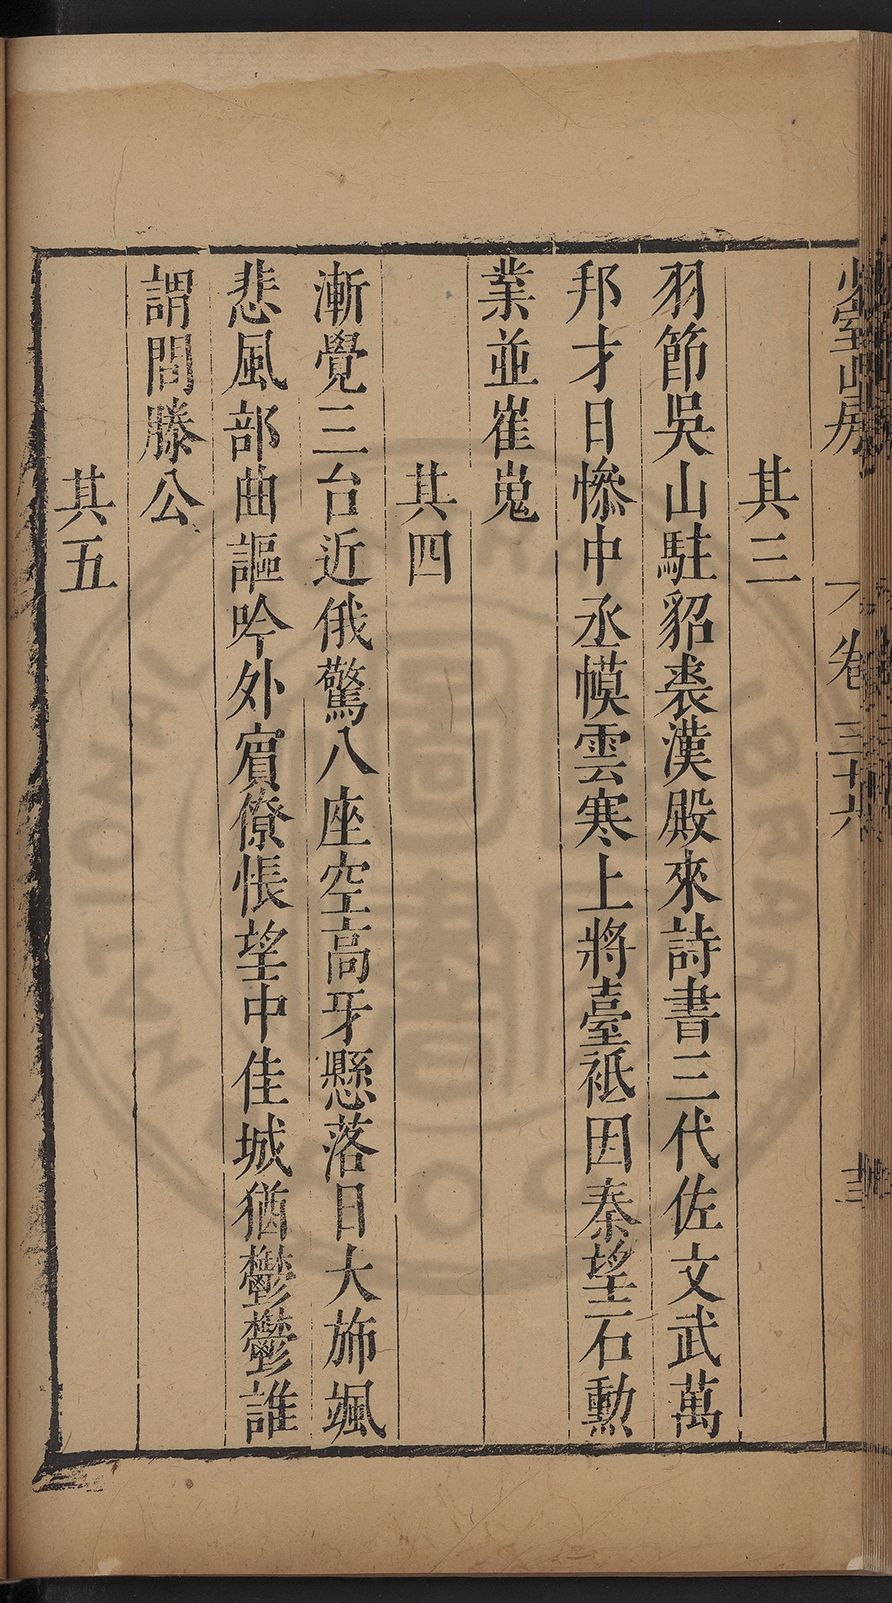 少室山房
卷三十六
其三
羽節吳山駐貂裘漢殿來詩書三代佐文武萬
邦才日慘中丞幙雲寒上將臺祗因秦望石勲
業並崔嵬
其四
漸覺三台近俄驚八座空高牙懸落日大斾颯
悲風部曲謳吟外賔僚悵望中佳城猶鬱鬱誰
謂問滕公
其五